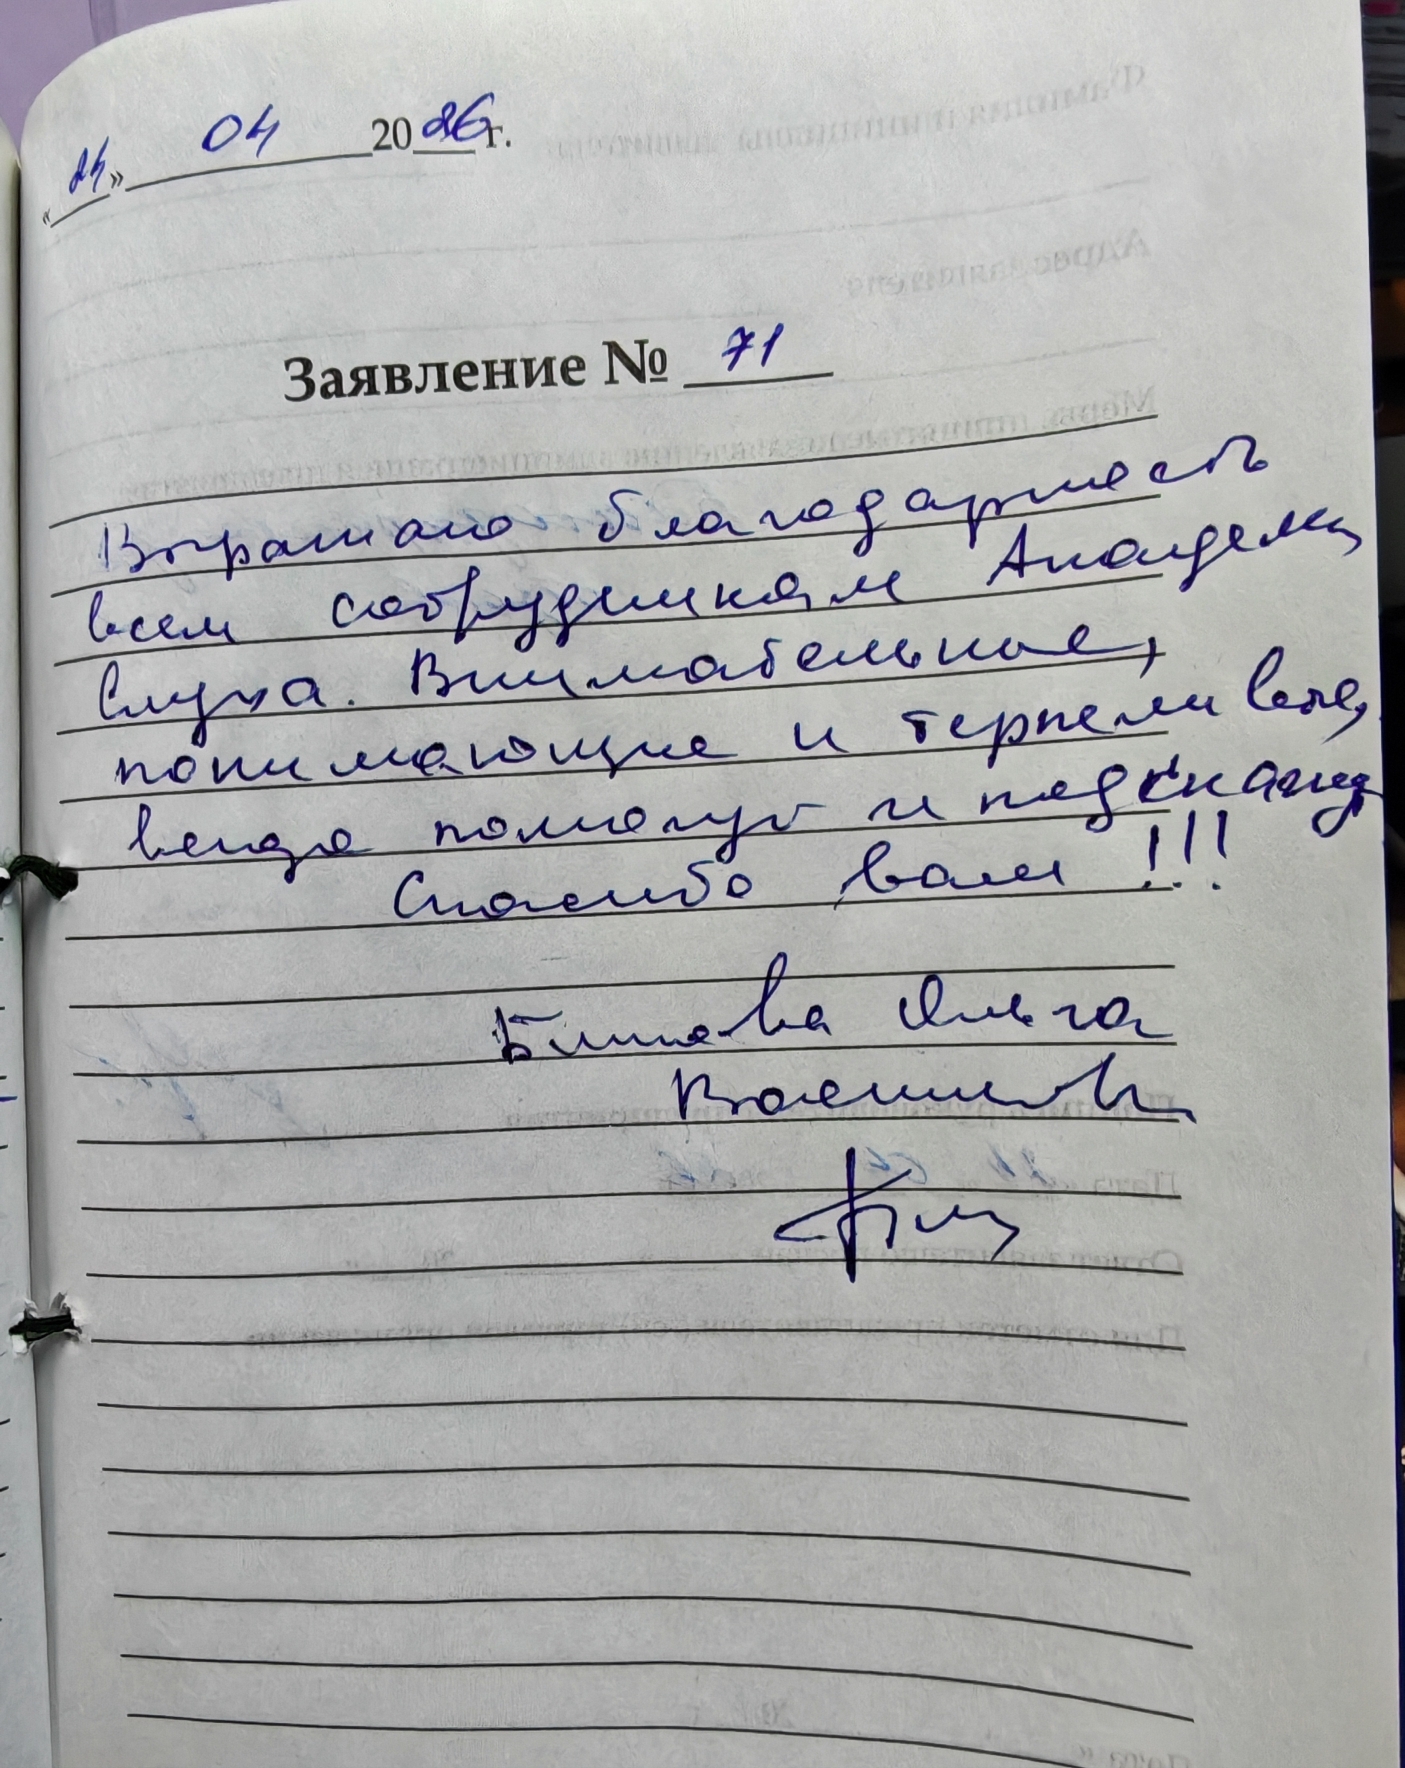 «24» 04 2026 г.
Заявление № 71
Выражаю благодарность
всем сотрудникам Академии
Слуха. Внимательные,
понимающие и терпеливые,
всегда помогут и подскажут
Спасибо вам!!!
Ольга